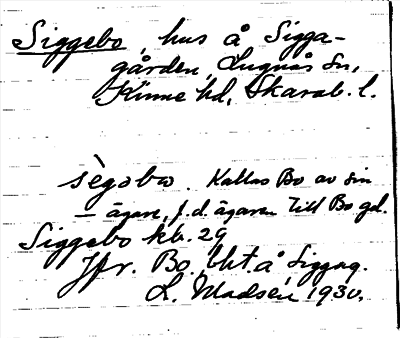 Siggebo, hus å Sigga-
gården, Lugnås sn,
Kinne hd, Skarab. l.
sègobω. Kallas Bo av sin
– ägare, f.d. ägaren till Bo gd.
Siggebo kb. 29
Jfr. Bo, bht. å Siggag.
L. Madsén, 1930.